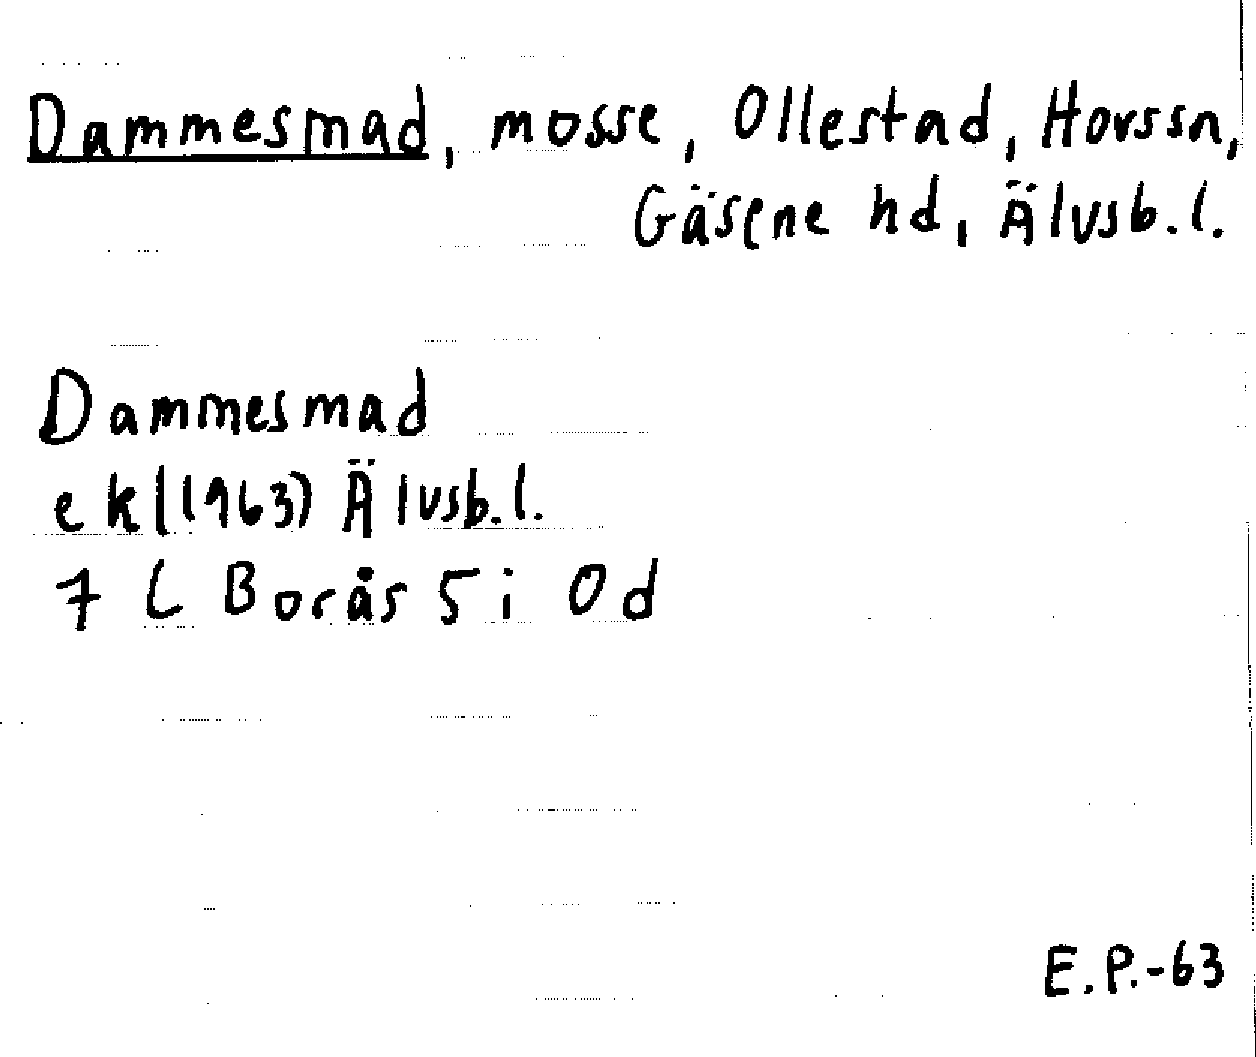 Dammesmad, mosse, Ollestad, Horssn,
Gäsene hd, Älvsb.l.
Dammesmad
ekl(1963) Älvsb.l.
7 C Borås 5i Od
E.P.-63